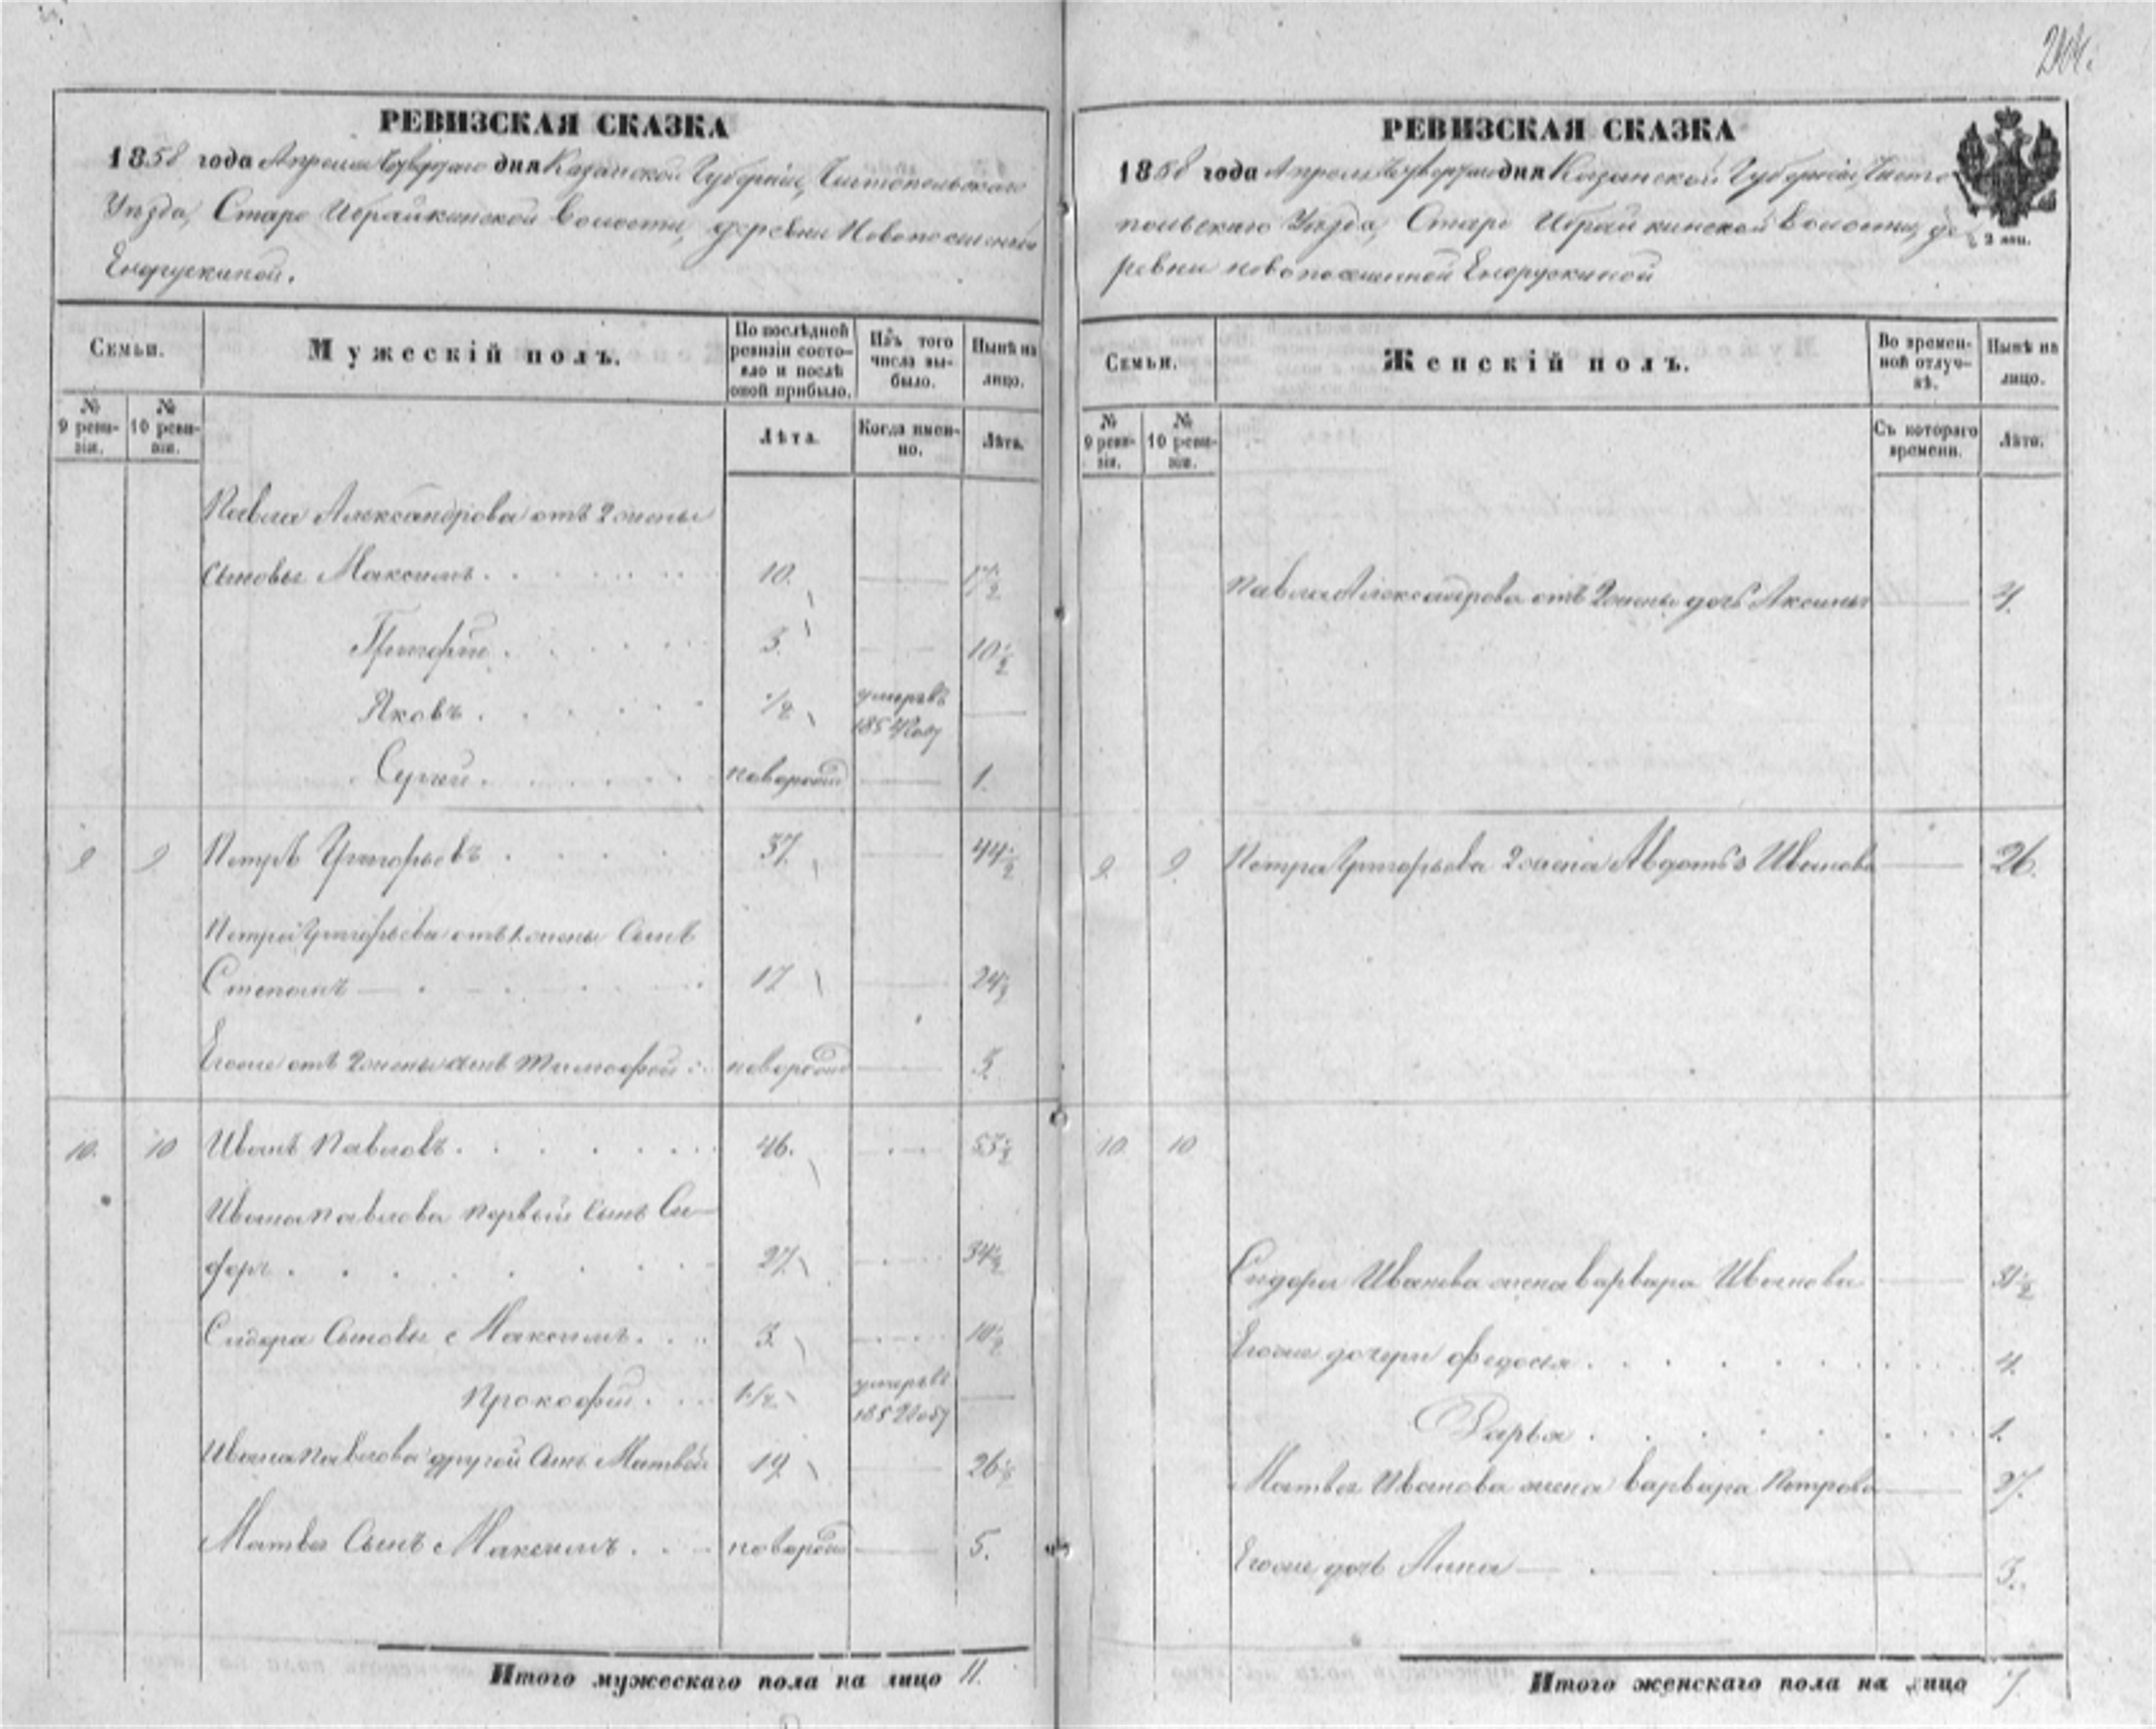 РЕВИЗСКАЯ СКАЗКА
1858 года Апреля дня Казанской Губерніи, Чистопольскаго
Уѣзда, Старо Ибрайкинской Волости, деревни Новопоселенной
Енорускиной.
Семьи.
Мужескій полъ.
По послѣдней ревизіи состояло и послѣ оной прибыло.
Изъ того числа выбыло.
Нынѣ на лицо.
№ 9 ревизіи.
№ 10 ревизіи.
Лѣта.
Когда именно.
Лѣта.
Павла Александрова отъ 2 жены
Сыновья Максимъ 10. 17½
Григорій 3. 10½
Яковъ ½ умеръ въ 1854 году
Сергей новорожд 1.
9 9 Петръ Григорьевъ 37. 44½
Петра Григорьева отъ 1 жены Сынъ
Степанъ 17 24½
Егоже отъ 2 жены сынъ Тимофей новорожд 3.
10. 10 Иванъ Павловъ 46. 53½
Ивана Павлова первый Сынъ Си-
доръ 27. 34½
Сидора Сыновья Максимъ 3. 10½
Прокофій 1½ умеръ въ 1852 году
Ивана Павлова другой Сынъ Матвей 19. 26½
Матвея Сынъ Максимъ новорожд 5.
Итого мужескаго пола на лицо 11.
204.
РЕВИЗСКАЯ СКАЗКА
1858 года Апреля дня Казанской Губерніи, Чисто-
польскаго Уѣзда, Старо Ибрайкинской Волости, де-
ревни новопоселенной Енорускиной
2 коп.
Семьи.
Женскій полъ.
Во временной отлучкѣ.
Нынѣ на лицо.
№ 9 ревизіи.
№ 10 ревизіи.
Съ котораго времени.
Лѣта.
Павла Александрова отъ 2 жены дочь Аксинья 4.
9. 9. Петра Григорьева 2 жена Авдотья Иванова 26.
10. 10
Сидора Иванова жена Варвара Иванова 31½
Егоже дочери Федосья 4.
Дарья 1.
Матвея Иванова жена Варвара Петрова 27.
Егоже дочь Анна 3.
Итого женскаго пола на лицо 7.